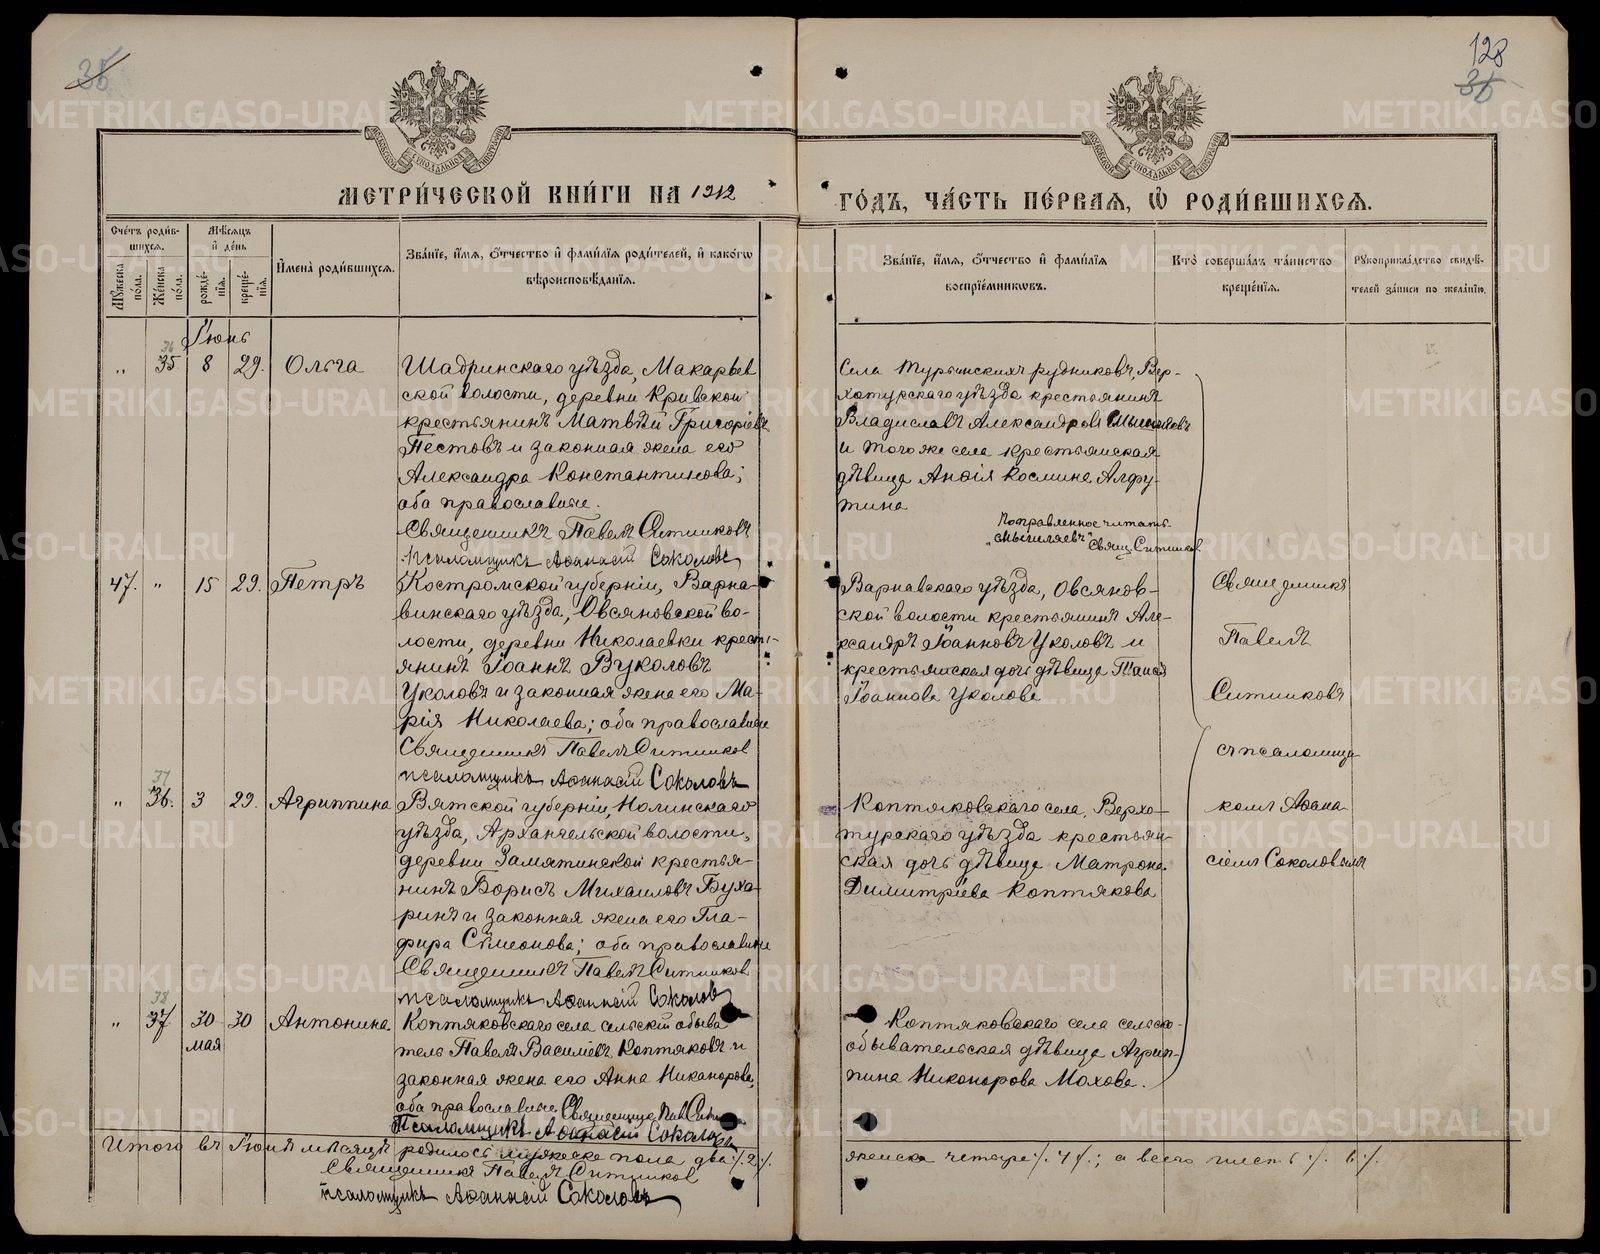 35
128
35
МЕТРИ́ЧЕСКОЙ КНИ́ГИ НА 1912
ГО́ДЪ, ЧА́СТЬ ПЕ́РВАѦ, Ѡ҆ РОДИ́ВШИХСѦ.
Сче́тъ роди́в-
шихсѧ.
Мѣ́сѧцъ
и҆ де́нь
Мꙋ́жеска
по́ла.
Же́нска
по́ла.
рожде́-
нїѧ.
креще́-
нїѧ.
И҆мена̀ роди́вшихсѧ.
Зва́нїе, и҆́мѧ, ѻ҆́тчество и҆ фами́лїѧ роди́телей, и҆ како́гѡ
вѣроисповѣ́данїѧ.
Зва́нїе, и҆́мѧ, ѻ҆́тчество и҆ фами́лїѧ
воспрїе́мникѡвъ.
Кто̀ соверша́лъ та́инство
креще́нїѧ.
Рꙋкоприкла́дство свидѣ́-
телей за́писи по жела́нїю.
Іюнь
36
" 35 8 29. Ольга
Шадринскаго уѣзда, Макарьев
ской волости, деревни Кривской
крестьянинъ Матвѣй Григоріевъ
Пестовъ и законная жена его
Александра Константинова;
оба православные.
Священникъ Павелъ Ситниковъ
Псаломщикъ Аѳанасій Соколовъ
Села Турьинскихъ рудниковъ, Вер-
хотурскаго уѣзда крестьянинъ
Владиславъ Александровъ Смышляевъ
и того же села крестьянская
дѣвица Анѳія Космина Алфу-
тина
Поправленное читать
"Смышляевъ" Свящ. Ситников
47. " 15 29. Петръ
Костромской губерніи, Варна-
винскаго уѣзда, Овсяновской во-
лости, деревни Николаевки кресть-
янинъ Іоаннъ Вуколовъ
Уколовъ и законная жена его Ма-
рія Николаева; оба православные
Священникъ Павелъ Ситников
псаломщикъ Аѳанасій Соколовъ
Варнавскаго уѣзда, Овсянов-
ской волости крестьянинъ Але-
ксандръ Іоанновъ Уколовъ и
крестьянская дочь дѣвица Таисія
Іоаннова Уколова
Священникъ
Павелъ
Ситниковъ
съ псаломщи-
комъ Аѳана-
сіемъ Соколовымъ
37
" 36. 3 29. Агриппина
Вятской губерніи, Нолинскаго
уѣзда, Архангельской волости,
деревни Замятинской крестья-
нинъ Борисъ Михаиловъ Буха-
ринъ и законная жена его Гла-
фира Симеонова; оба православные
Священникъ Павелъ Ситников
псаломщикъ Аѳанасій Соколовъ
Коптяковскаго села, Верхо-
турскаго уѣзда крестьян-
ская дочь дѣвица Матрона
Димитріева Коптякова
38
" 37 30 30 Антонина.
мая
Коптяковскаго села сельскій обыва
тель Павелъ Василіевъ Коптяковъ и
законная жена его Анна Никанорова,
оба православные. Священникъ Пав. Ситн
Псаломщикъ Аѳанасій Соколовъ
Коптяковскаго села сельско-
обывательская дѣвица Агрип-
пина Никонорова Махова.
Итого въ Іюнѣ мѣсяцѣ родилось мужеска пола два ./. 2 ./.
женска четыре ./. 4 ./. ; а всего шесть ./. 6 ./.
Священникъ Павелъ Ситников
Псаломщикъ Аѳанасій Соколовъ
METRIKI.GASO-URAL.RU